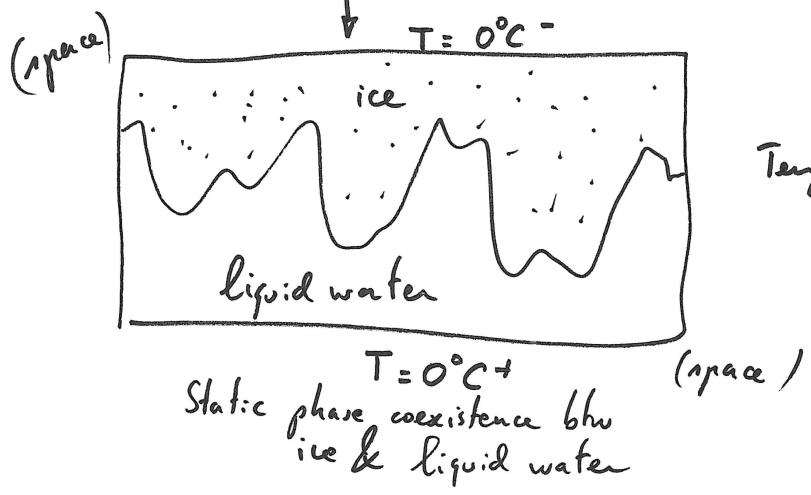 T = 0°C -
(space)
ice
liquid water
T = 0°C +
(space)
Static phase coexistence btw
ice & liquid water